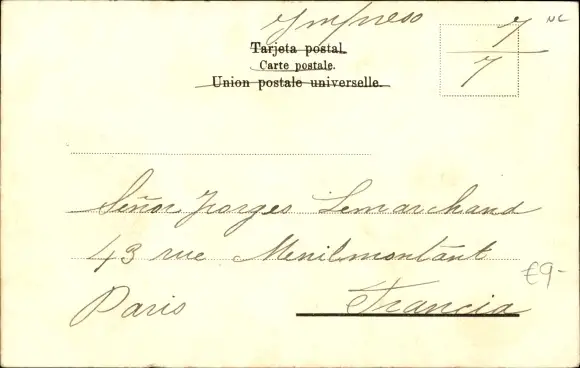 Impreso
Tarjeta postal.
Carte postale.
Union postale universelle.
7
7
NC
Señor Jorges Lemarchand
43 rue Menilmontant
£9-
Paris Francia